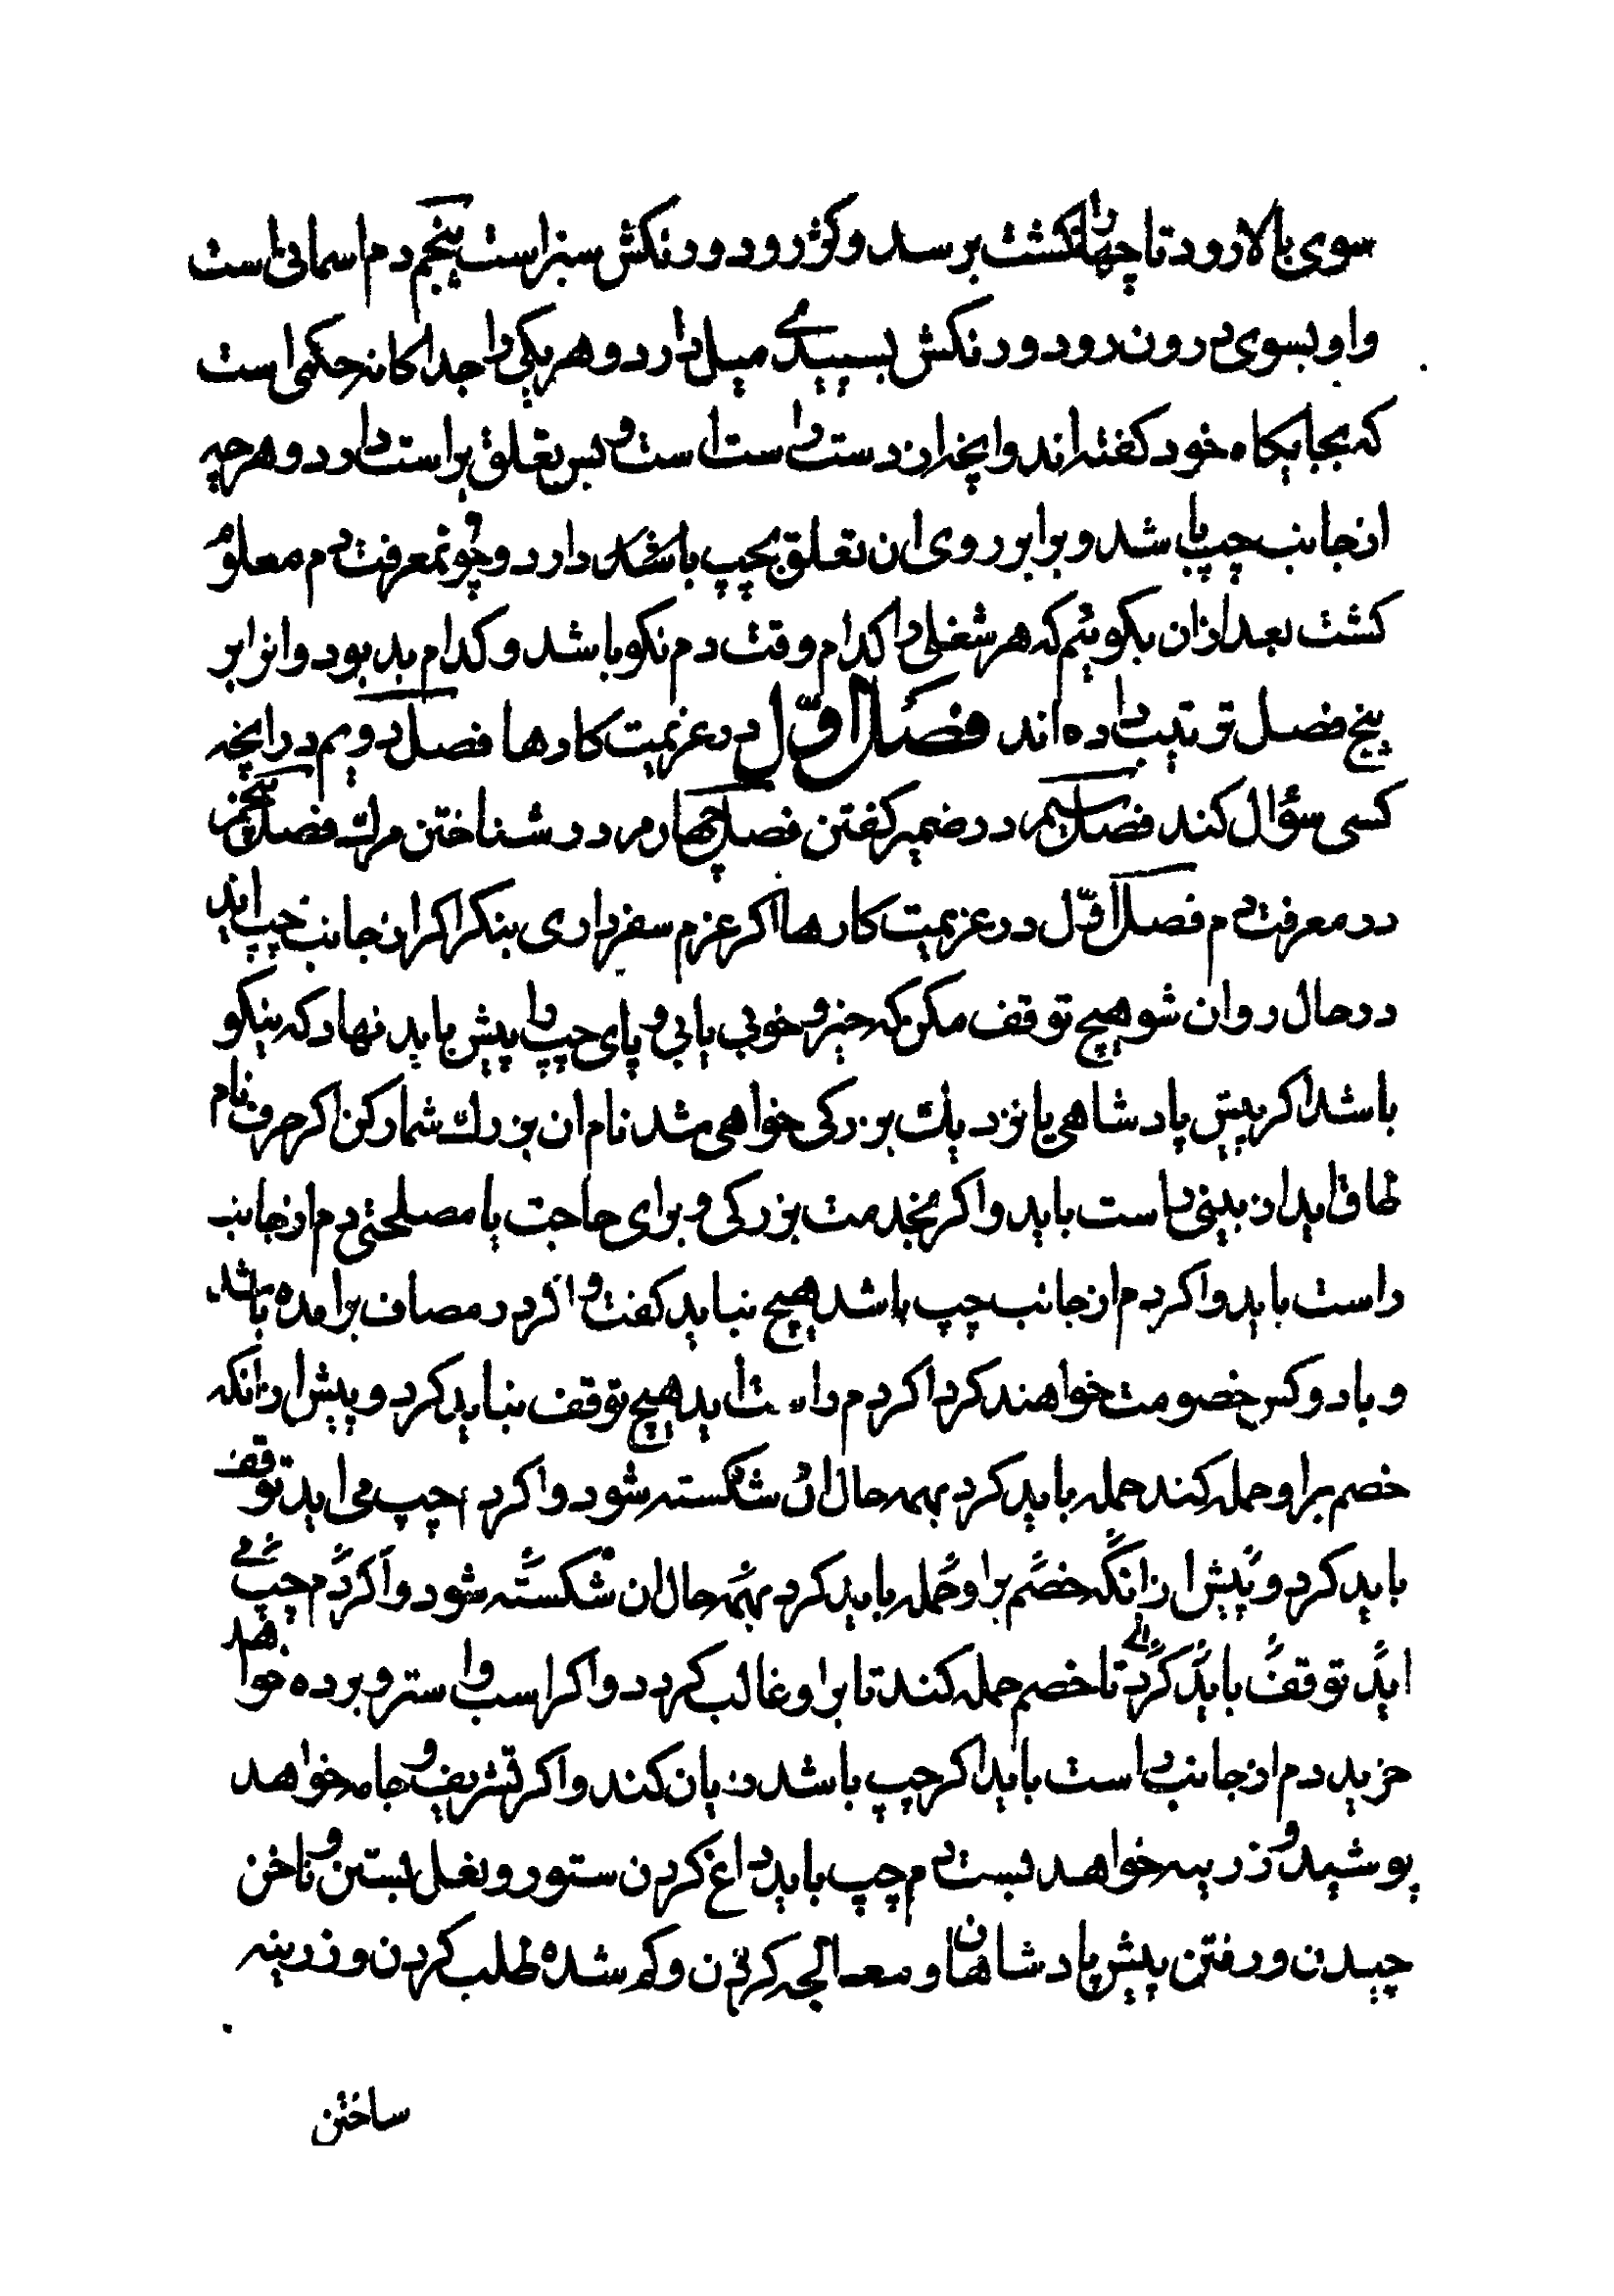 سوی بالا رود تا چهار انکشت برسد و کژ رود و رنکش سبز است پنجم دم اسمانی است
و او بسوی درون رود و رنکش بسپیدی میل دارد و هر یکی را جدا کانه حکمی است
که بجایکاه خود کفته اند و انچه از دست راست است و پس تعلق براست دارد و هرچه
از جانب چپ باشد و برابر روی ان تعلق بچپ دارد و چون معرفت دم معلوم
کشت بعد ازان بکوئیم که هر شغلی را کدام وقت دم نکو باشد و کدام بد بود و انرا بر
پنج فصل ترتیب داده اند فصل اوّل در عزیمت کارها فصل دویم در انچه
کسی سؤال کند فصل سیم در ضمیر کفتن فصل چهارم در شناختن مرک فصل پنجم
در معرفت دم فصل اوّل در عزیمت کارها اکر عزم سفر داری بنکر اکر از جانب چپ اید
در حال روان شو هیچ توقف مکن که خیر و خوبی یابی و پای چپ را پیش باید نهاد که نیکو
باشد اکر پیش پادشاهی یا نزدیک بزرکی خواهی شد نام ان بزرک شمار کن اکر حرف نام
طاق اید از بینی راست باید و اکر بخدمت بزرکی و برای حاجت یا مصلحتی دم از جانب
راست باید و اکر دم از جانب چپ باشد هیچ نباید کفت و اکر در مصاف برامده باشد
و با دو کس خصومت خواهند کرد اکر دم راست اید هیچ توقف نباید کرد و پیش ازانکه
خصم بر او حمله کند حمله باید کرد بهمه حال ان شکسته شود و اکر دم چپ می اید توقف
باید کرد و پیش ازانکه خصم بر او حمله باید کرد بهمه حال ان شکسته شود و اکر دم چپ می
اید توقف باید کرد تا خصم حمله کند تا بر او غالب کردد و اکر اسب و استر و برده خواهد
خرید دم از جانب راست باید اکر چپ باشد زیان کند و اکر تشریف و جامه خواهد
پوشید و زرینه خواهد بست دم چپ باید داغ کردن ستور و نعل بستن و ناخن
چیدن و رفتن پیش پادشاهان و معالجه کردن و کم شده طلب کردن و زرینه
ساختن